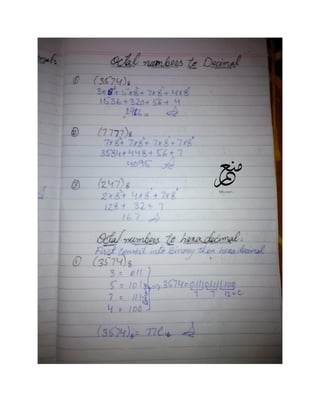 Octal numbers to Decimal
① (3574)₈
3×8³+5×8²+7×8¹+4×8⁰
1536+320+56+4
1916 =
② (7777)₈
7×8³+7×8²+7×8¹+7×8⁰
3584+448+56+7
4095
③ (247)₈
2×8²+4×8¹+7×8⁰
128+32+7
167
Octal numbers to hexadecimal.
First convert into binary then hexadecimal
① (3574)₈
3 = 011
5 = 101
7 = 111
4 = 100
3574=011101111100
7 7 12=C
(3574)₈ = 77C₁₆